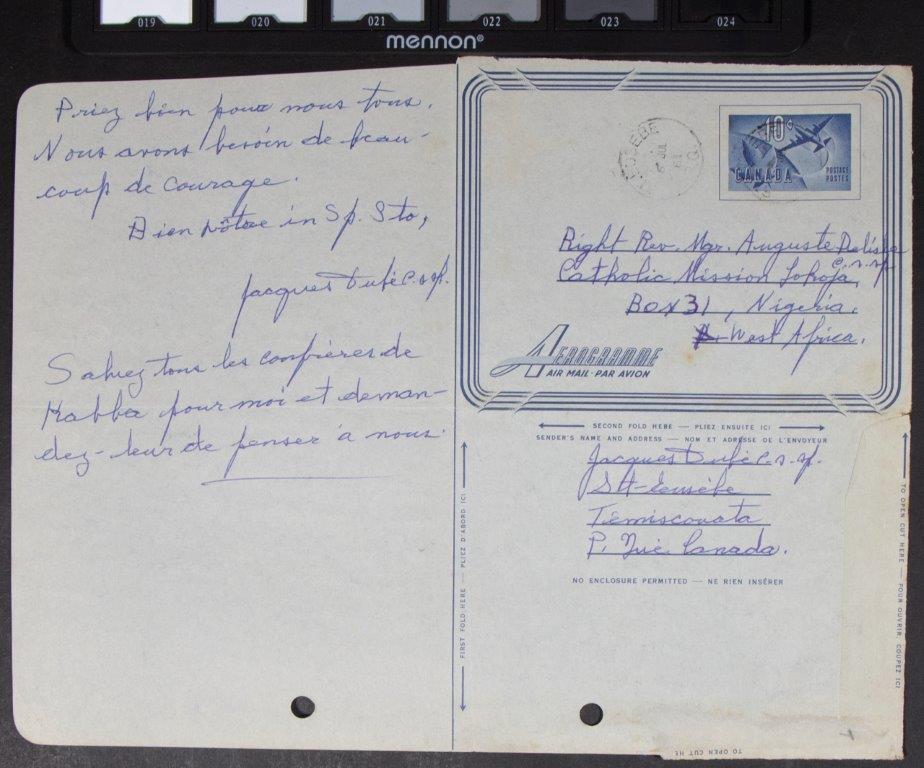 019 020 021 022 023 024
mennon®
Priez bien pour nous tous.
Nous avons besoin de beau-
coup de courage.
Bien nôtre in Sp. Sto,
Jacques Dubé c.s.sp.
Saluez tous les confrères de
Kabba pour moi et deman-
dez-leur de penser à nous.
EUSEBE
JUL
61
10¢
CANADA
POSTAGE
POSTES
Right Rev. Mgr. Auguste Delisle
c.s.sp
Catholic Mission Lokoja,
Box 31, Nigeria.
West Africa.
AEROGRAMME
AIR MAIL · PAR AVION
SECOND FOLD HERE — PLIEZ ENSUITE ICI
SENDER'S NAME AND ADDRESS — NOM ET ADRESSE DE L'ENVOYEUR
Jacques Dubé c.s.sp.
St-Eusèbe
Témiscouata
P. Qué. Canada.
NO ENCLOSURE PERMITTED — NE RIEN INSÉRER
FIRST FOLD HERE — PLIEZ D'ABORD ICI
TO OPEN CUT HERE — POUR OUVRIR, COUPEZ ICI
TO OPEN CUT HE